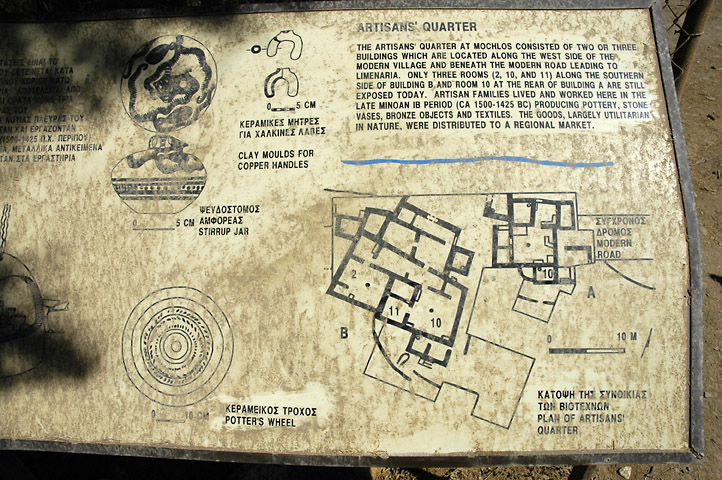 ARTISANS' QUARTER
THE ARTISANS' QUARTER AT MOCHLOS CONSISTED OF TWO OR THREE
BUILDINGS WHICH ARE LOCATED ALONG THE WEST SIDE OF THE
MODERN VILLAGE AND BENEATH THE MODERN ROAD LEADING TO
LIMENARIA. ONLY THREE ROOMS (2, 10, AND 11) ALONG THE SOUTHERN
SIDE OF BUILDING B AND ROOM 10 AT THE REAR OF BUILDING A ARE STILL
EXPOSED TODAY. ARTISAN FAMILIES LIVED AND WORKED HERE IN THE
LATE MINOAN IB PERIOD (CA 1500-1425 BC) PRODUCING POTTERY, STONE
VASES, BRONZE OBJECTS AND TEXTILES. THE GOODS, LARGELY UTILITARIAN
IN NATURE, WERE DISTRIBUTED TO A REGIONAL MARKET.
ΕΙΝΑΙ ΤΟ
ΕΚΤΕΙΝΕΤΑΙ ΚΑΤΑ
ΠΛΕΥΡΑΣ ΤΟΥ
ΚΑΙ ΕΡΓΑΖΟΝΤΑΝ
(1500-1425 Π.Χ. ΠΕΡΙΠΟΥ)
ΜΕΤΑΛΛΙΚΑ ΑΝΤΙΚΕΙΜΕΝΑ
ΣΤΑ ΕΡΓΑΣΤΗΡΙΑ
0 5 CM
ΚΕΡΑΜΙΚΕΣ ΜΗΤΡΕΣ
ΓΙΑ ΧΑΛΚΙΝΕΣ ΛΑΒΕΣ
CLAY MOULDS FOR
COPPER HANDLES
0 5 CM
ΨΕΥΔΟΣΤΟΜΟΣ
ΑΜΦΟΡΕΑΣ
STIRRUP JAR
0 10 CM
ΚΕΡΑΜΕΙΚΟΣ ΤΡΟΧΟΣ
POTTER'S WHEEL
ΣΥΓΧΡΟΝΟΣ
ΔΡΟΜΟΣ
MODERN
ROAD
2
11
10
B
10
A
0 10 M
ΚΑΤΟΨΗ ΤΗΣ ΣΥΝΟΙΚΙΑΣ
ΤΩΝ ΒΙΟΤΕΧΝΩΝ
PLAN OF ARTISANS'
QUARTER